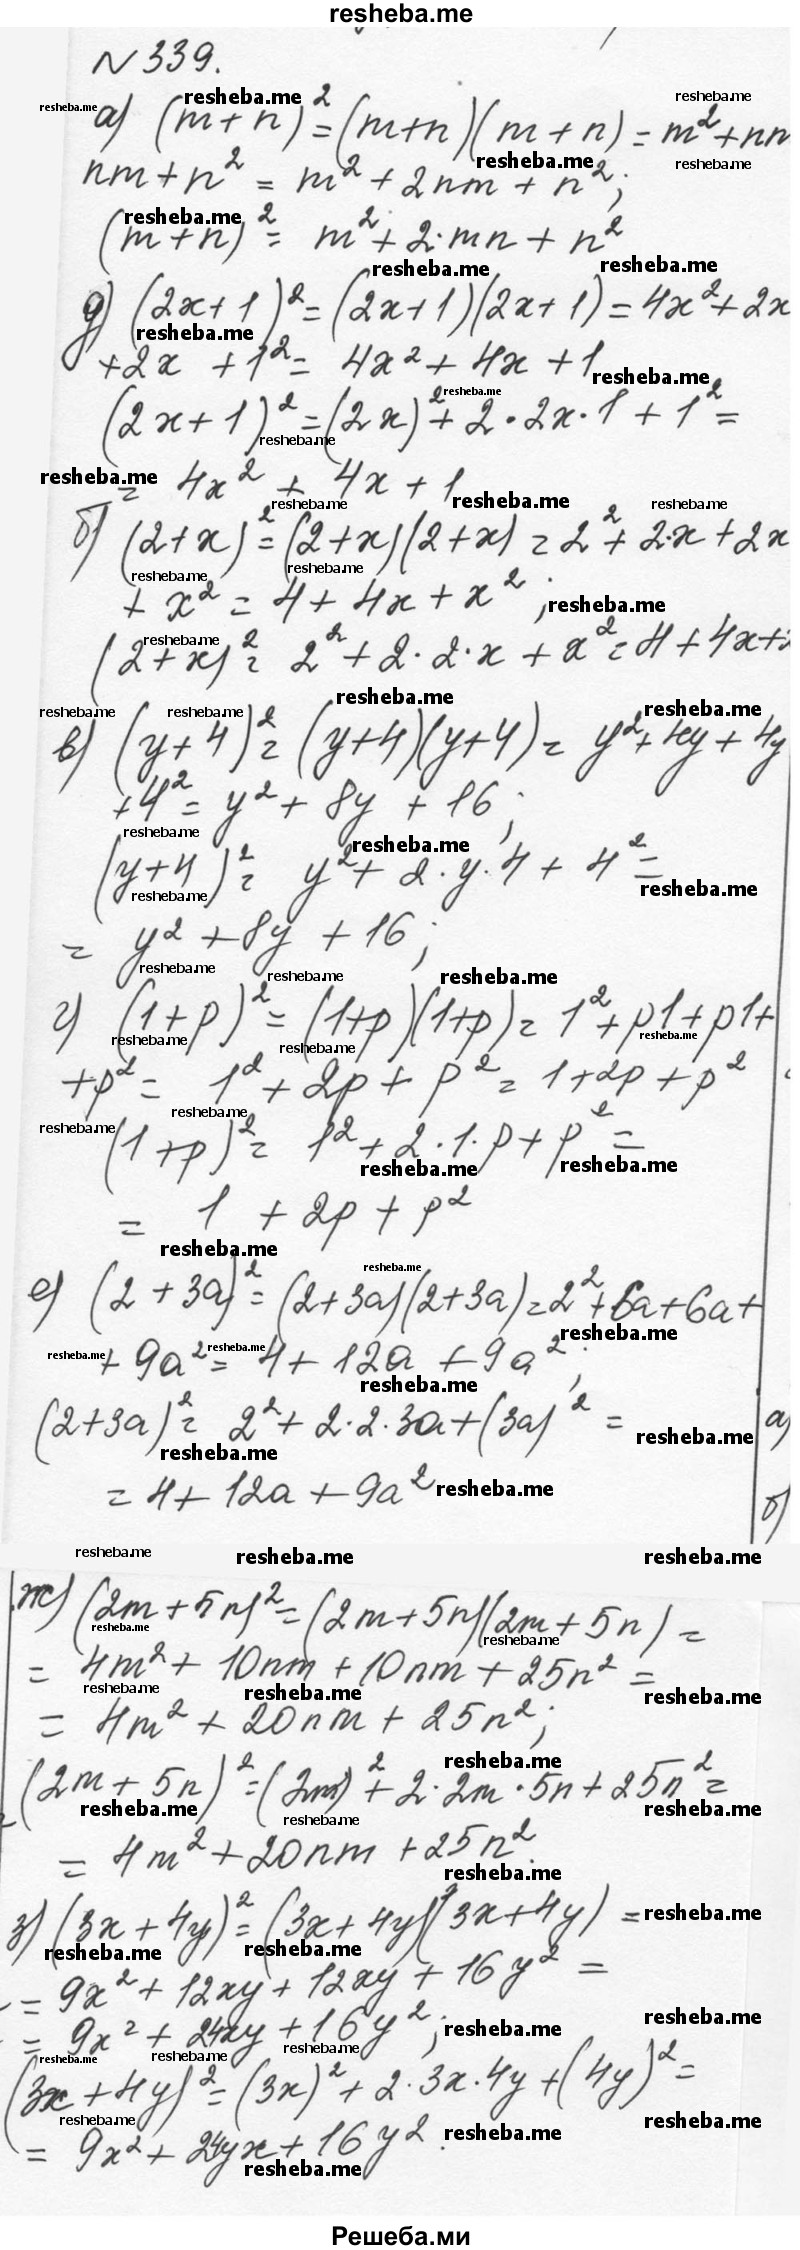 resheba.me
№339.
а) (m+n)²=(m+n)(m+n)=m²+nm
nm+n²=m²+2nm+n²;
(m+n)²= m²+2·mn+n²
д) (2x+1)²=(2x+1)(2x+1)=4x²+2x
+2x +1²= 4x²+4x+1
(2x+1)²=(2x)²+2·2x·1+1²=
= 4x²+4x+1
б) (2+x)²=(2+x)(2+x)=2²+2·x+2x
+x²=4+4x+x²;
(2+x)²= 2²+2·2·x+x²=4+4x+
в) (y+4)²=(y+4)(y+4)= y²+4y+4y
+4²=y²+8y+16;
(y+4)²= y²+2·y·4+4²=
= y²+8y+16;
г) (1+p)²=(1+p)(1+p)=1²+p1+p1+
+p²= 1²+2p+p²=1+2p+p²
(1+p)²= 1²+2·1·p+p²=
= 1+2p+p²
е) (2+3a)²=(2+3a)(2+3a)=2²+6a+6a+
+9a²=4+12a+9a²;
(2+3a)²= 2²+2·2·3a+(3a)²=
а)
=4+12a+9a²
б)
ж) (2m+5n)²=(2m+5n)(2m+5n)=
= 4m²+10nm+10nm+25n²=
= 4m²+20nm+25n²;
(2m+5n)²=(2m)²+2·2m·5n+25n²=
= 4m²+20nm+25n².
з) (3x+4y)²=(3x+4y)(3x+4y)=
=9x²+12xy+12xy+16y²=
= 9x²+24xy+16y²;
(3x+4y)²=(3x)²+2·3x·4y+(4y)²=
= 9x²+24yx+16y².
Решеба.ми